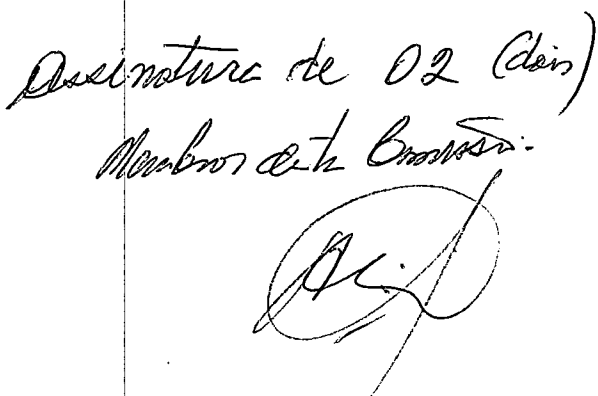 Assinatura de 02 (dois)
Membros desta Comissão.